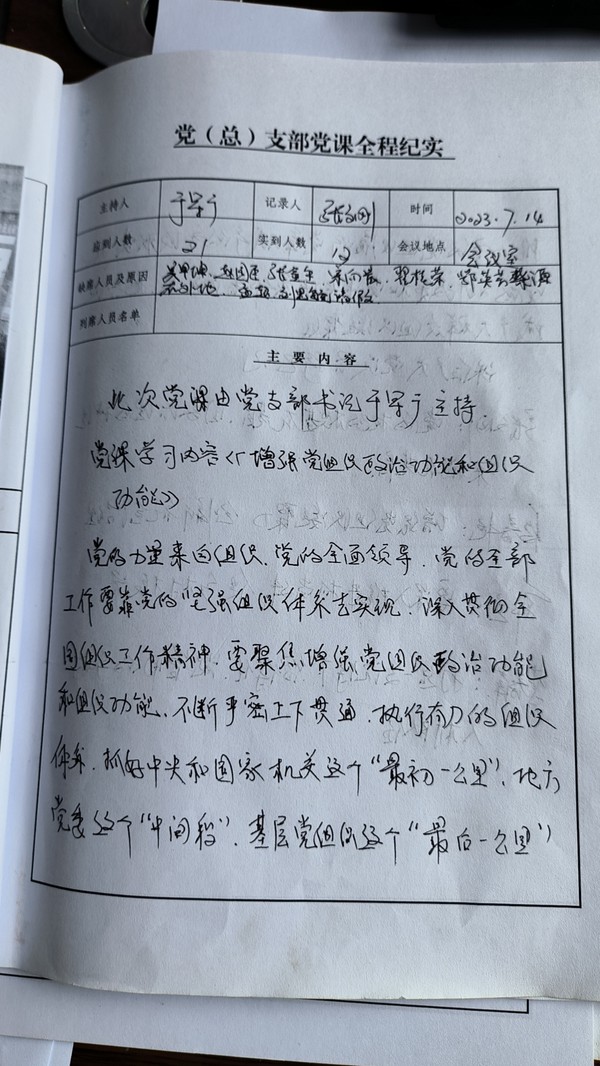 党（总）支部党课全程纪实
主持人 于军 记录人 时间 2023.7.14
应到人数 21 实到人数 12 会议地点 会议室
缺席人员及原因
在外地 请假
列席人员名单
主要内容
此次党课由党支部书记于军主持.
党课学习内容《增强党组织政治功能和组织
功能》
党的力量来自组织.党的全面领导.党的全部
工作要靠党的坚强组织体系去实现.深入贯彻全
国组织工作精神.要聚焦增强党组织政治功能
和组织功能.不断严密上下贯通.执行有力的组织
体系.抓好中央和国家机关这个“最初一公里”.地方
党委这个“中间段”.基层党组织这个“最后一公里”